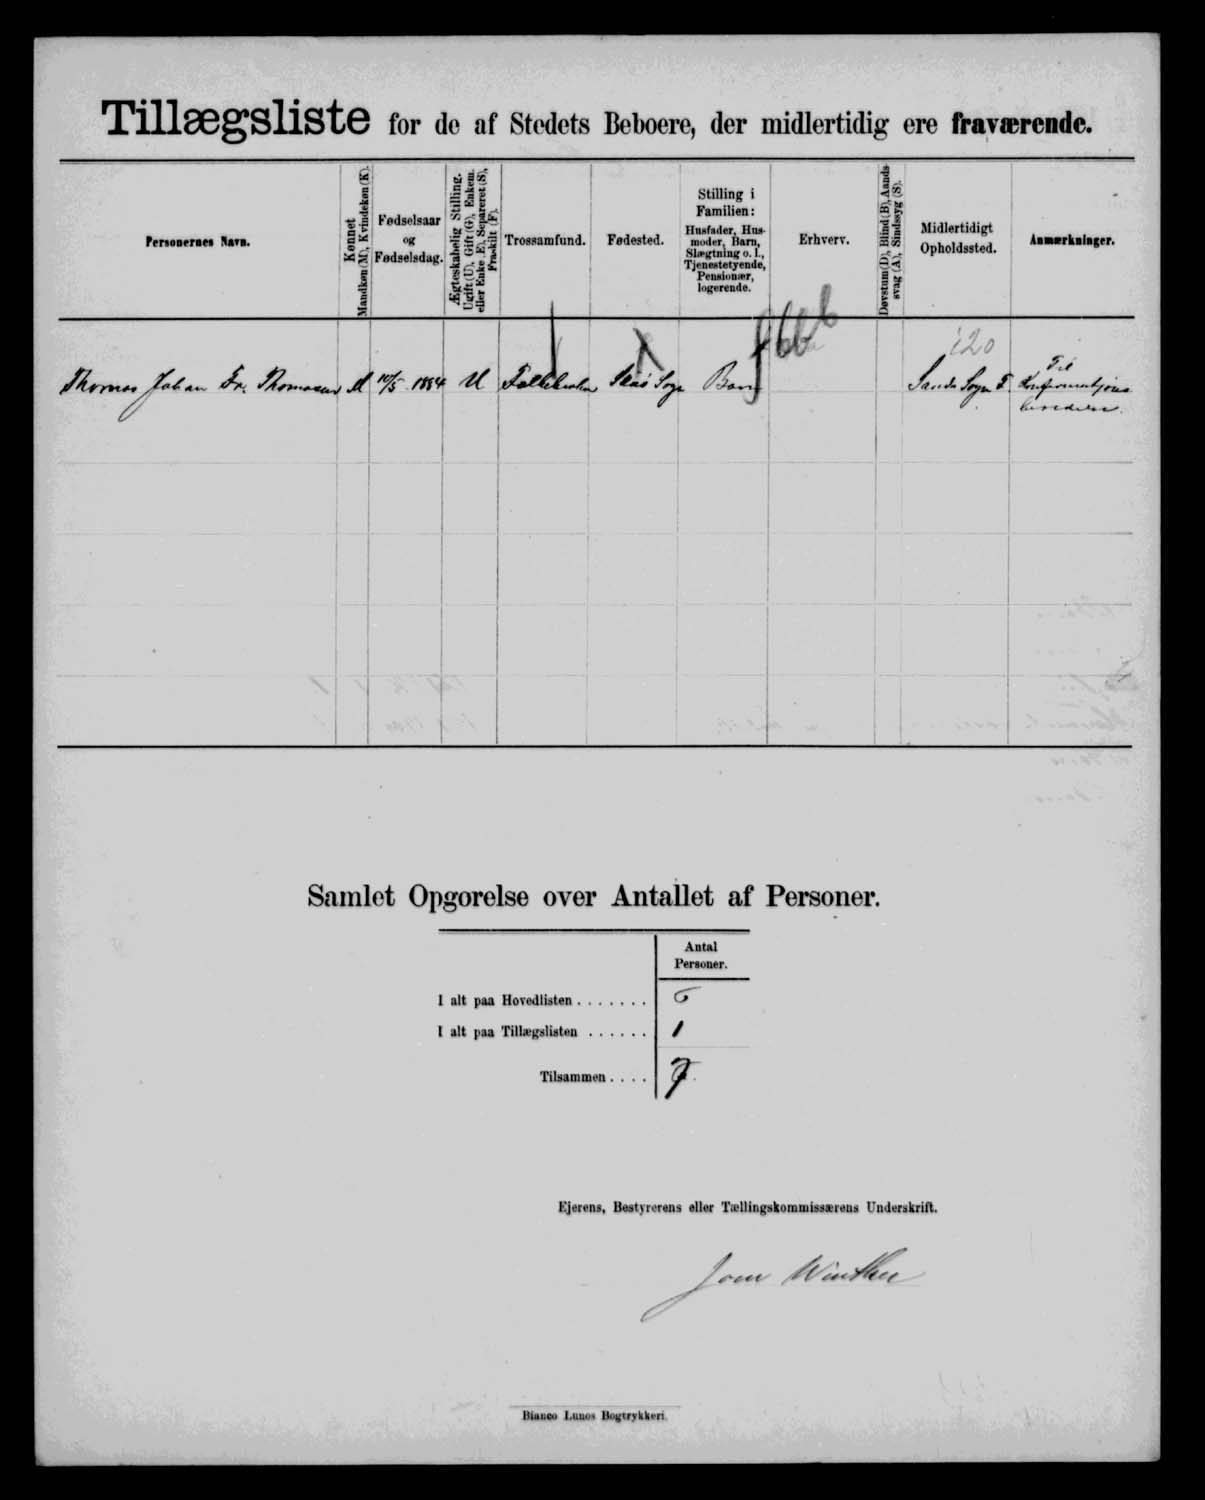 Tillægsliste for de af Stedets Beboere, der midlertidig ere fraværende.
Personernes Navn.
Kønnet
Mandkøn (M), Kvindekøn (K).
Fødselsaar
og
Fødselsdag.
Ægteskabelig Stilling.
Ugift (U), Gift (G), Enkem.
eller Enke (E), Separeret (S),
Fraskilt (F).
Trossamfund.
Fødested.
Stilling i
Familien:
Husfader, Hus-
moder, Barn,
Slægtning o. l.,
Tjenestetyende,
Pensionær,
logerende.
Erhverv.
Døvstum (D), Blind (B), Aands-
svag (A), Sindssyg (S).
Midlertidigt
Opholdssted.
Anmærkninger.
120
Thomas Johan Fr. Thomasen M 10/5 1884 U Folkekirken Sogn Barn Sands Sogn
Til
Konfirmations
Samlet Opgørelse over Antallet af Personer.
Antal
Personer.
I alt paa Hovedlisten . . . . . . . 6
I alt paa Tillægslisten . . . . . . 1
Tilsammen . . . . 7
Ejerens, Bestyrerens eller Tællingskommissærens Underskrift.
Winther
Bianco Lunos Bogtrykkeri.